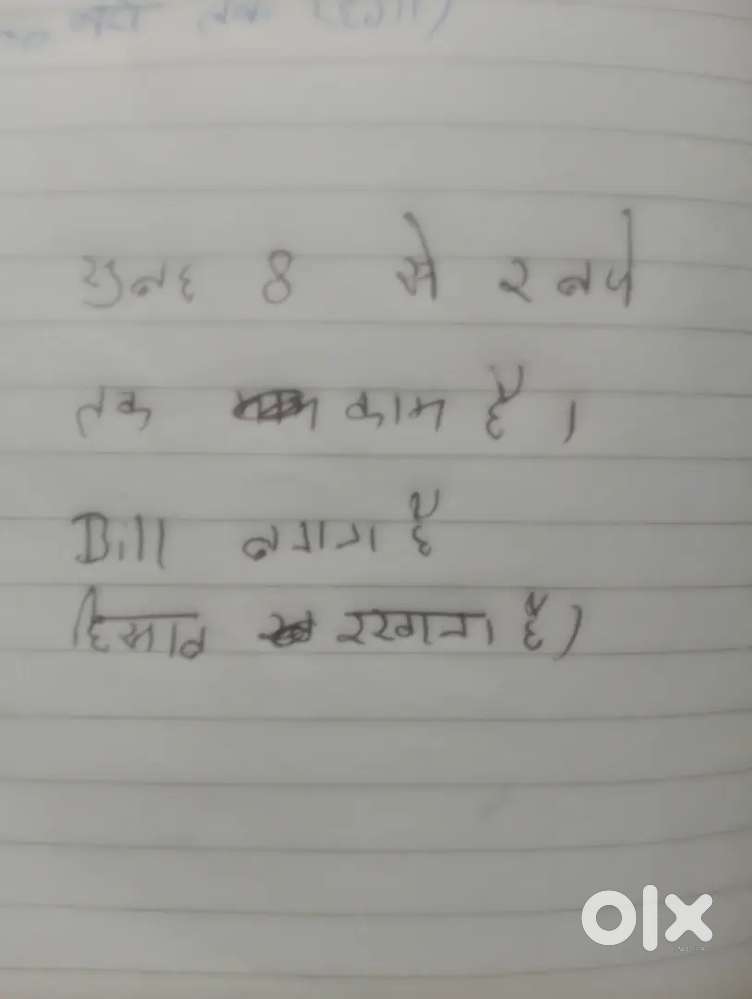 सुबह 8 से 2 बजे
तक काम है।
Bill बनाना है
हिसाब रखना है।
olx